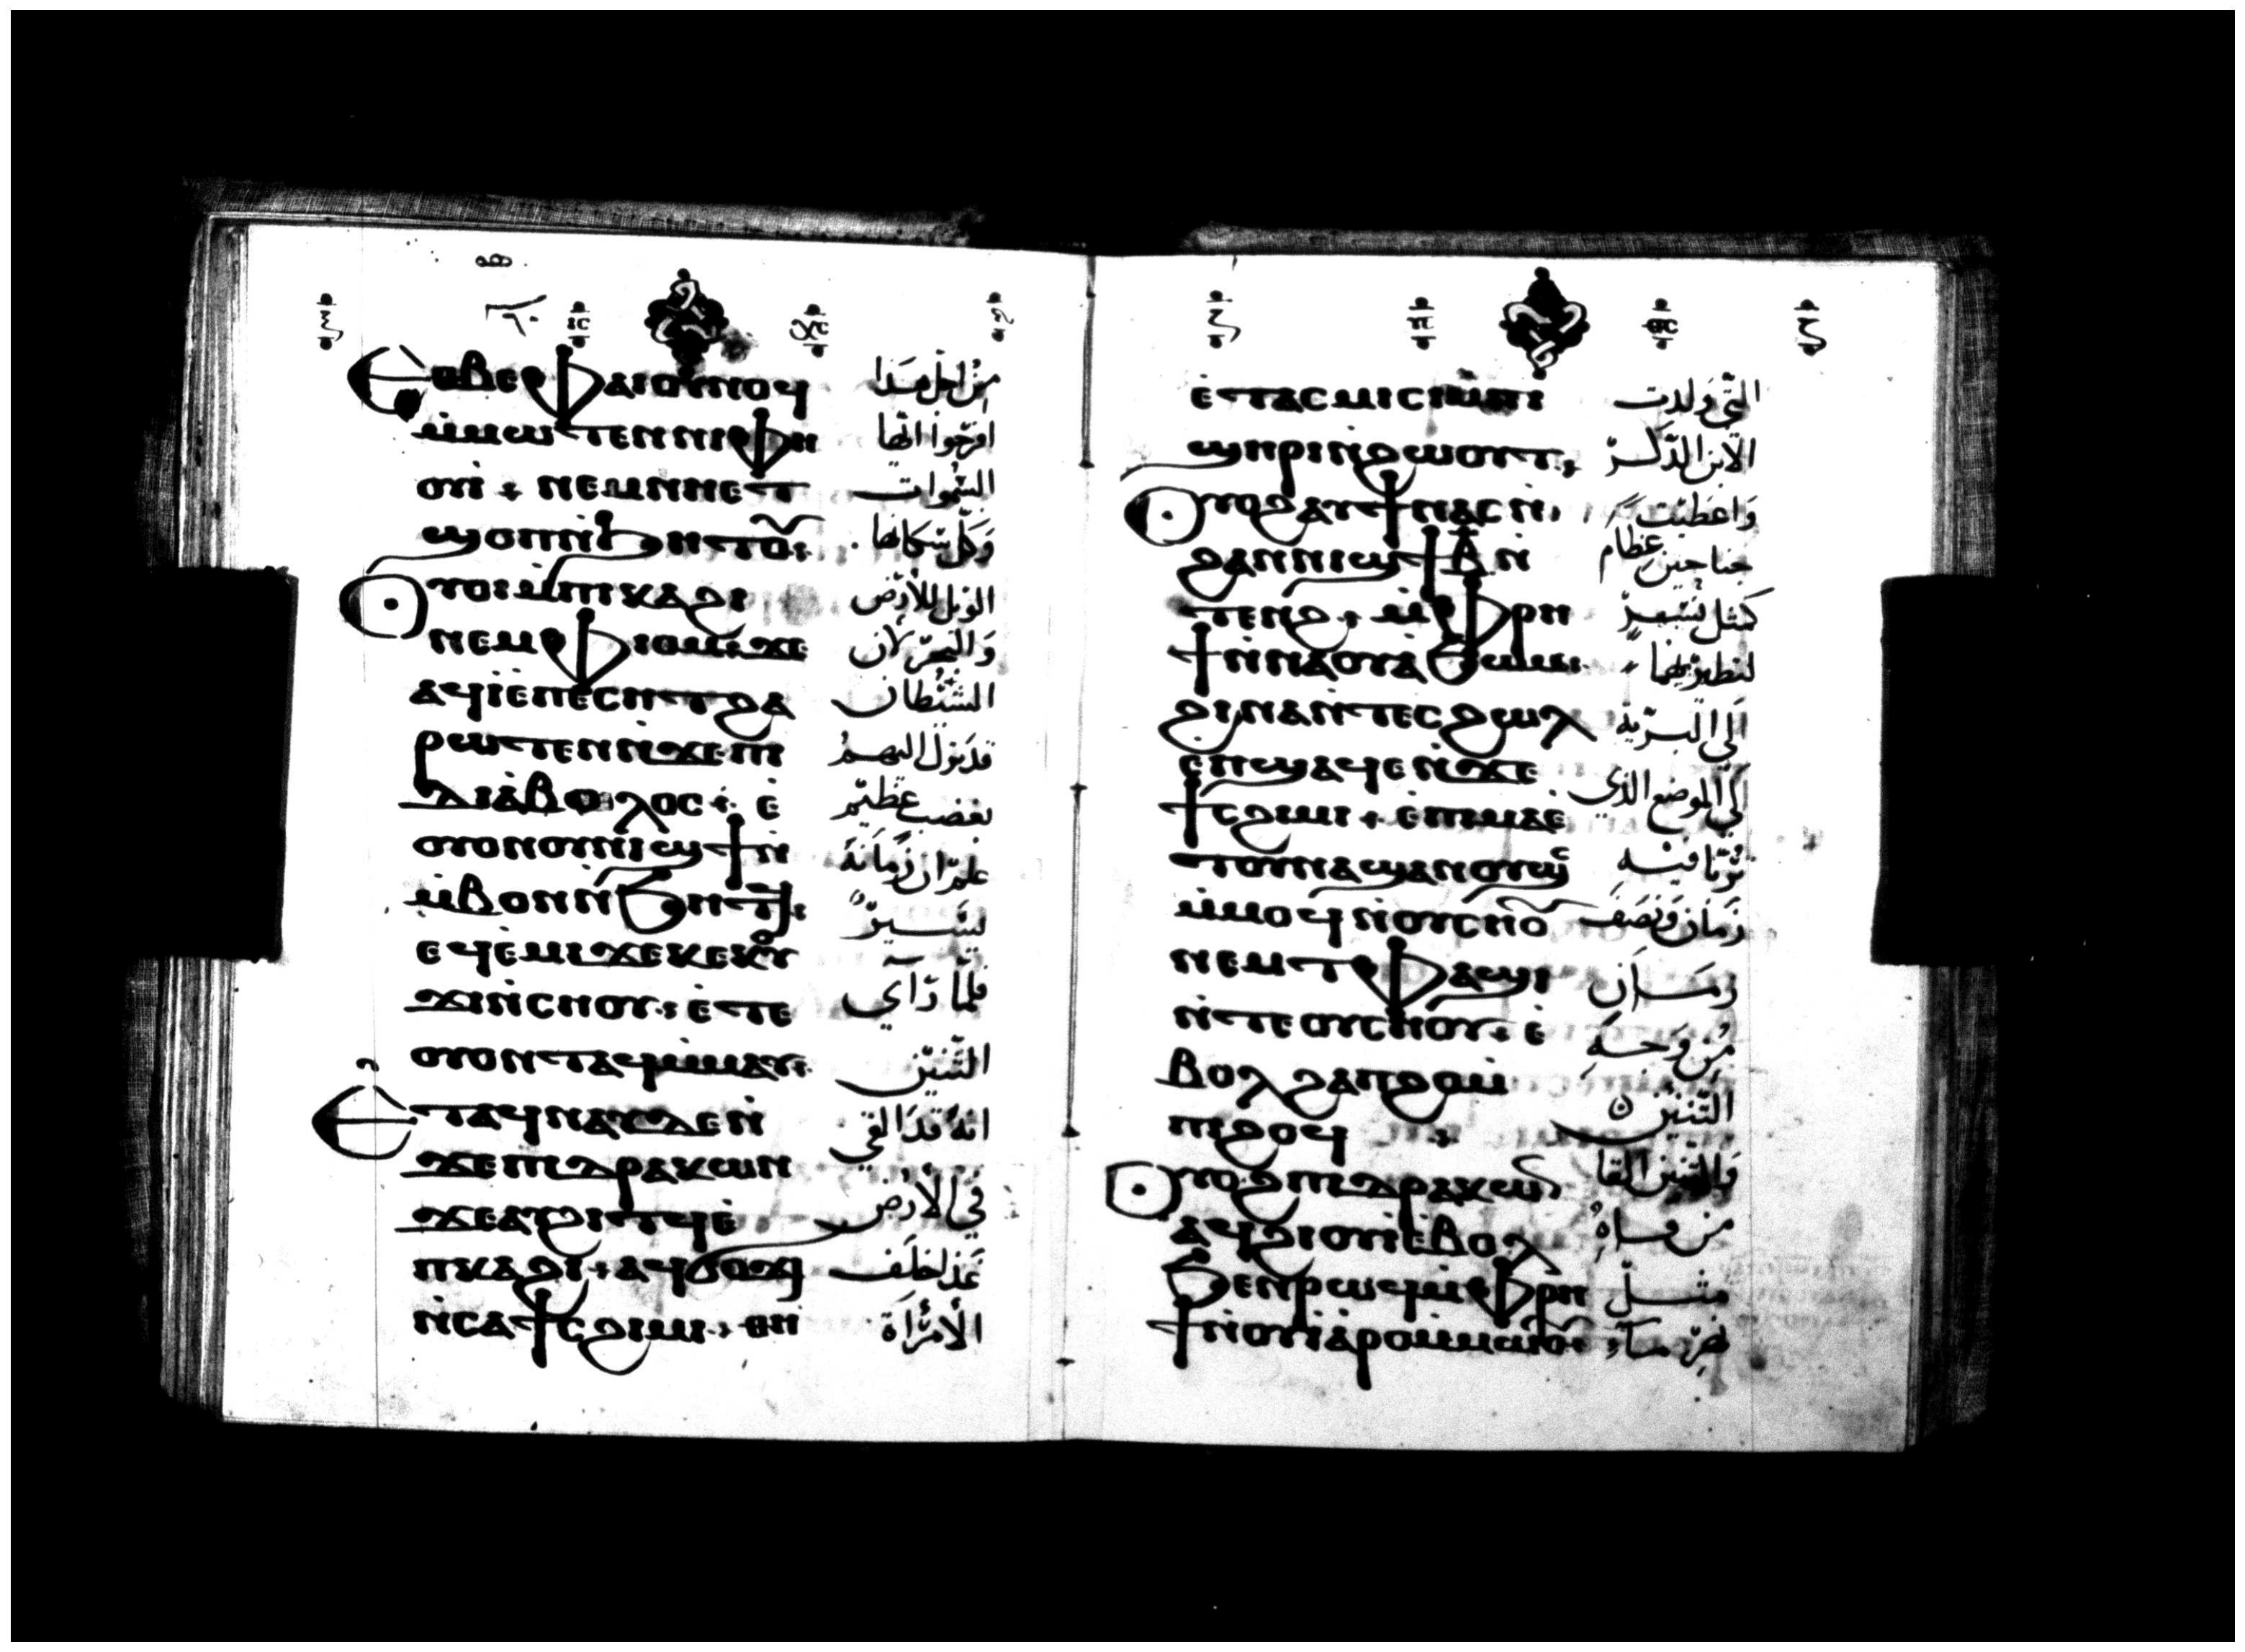 ⲓⲥ ⲭⲥ
ⲉⲑⲃⲉⲫⲁⲓⲟⲩⲛⲟϥ
ⲙ̀ⲙⲱⲧⲉⲛⲛⲓⲫⲏ
ⲟⲩⲓ̀ ⲛⲉⲙⲛⲏⲉⲧ
ϣⲟⲡⲛ̀ϧⲏⲧⲟⲩ
ⲟⲩⲟⲓⲙ̀ⲡⲕⲁϩⲓ
ⲛⲉⲙⲫⲓⲟⲙ ϫⲉ
ⲁϥⲓ̀ⲉ̀ⲡⲉⲥⲏⲧϩⲁ
ⲣⲱⲧⲉⲛⲛ̀ϫⲉⲡⲓ
ⲇⲓⲁ̀ⲃⲟⲗⲟⲥ ⲉ̀
ⲟⲩⲟⲛⲟⲩⲛⲓϣϯⲛ̀
ⲙ̀ⲃⲟⲛⲛ̀ϧⲏⲧϥ
ⲉϥⲉ̀ⲙⲓϫⲉⲕⲉⲕⲟⲩ
ϫⲓⲛ̀ⲥⲏⲟⲩ ⲉ̀ⲧⲉ
ⲟⲩⲟⲛⲧⲁϥⲙ̀ⲙⲁⲩ
ⲉⲧⲁϥⲛⲁⲩⲇⲉⲛ̀
ϫⲉⲡⲓⲇⲣⲁⲕⲱⲛ
ϫⲉⲁⲩϩⲓⲧϥⲉ̀
ⲡⲕⲁϩⲓ ⲁϥϭⲟϫⲓ
ⲛ̀ⲥⲁϯⲥϩⲓⲙⲓ ⲑⲏ
من اجل هذا
افرحوا ايها
السموات
وكل سكانها
الويل للارض
والبحر لان
الشيطان
قد نزل اليهم
بغضب عظيم
علم ان زمانه
يسير
فلما رآي
التنين
انه قد القي
في الارض
خلف
الامراة
ⲑⲥ
ⲉ̀ⲧⲁⲥⲙⲓⲥⲓⲙ̀ⲡⲓ
ϣⲏⲣⲓⲛ̀ϩⲱⲟⲩⲧ
ⲟⲩⲟϩⲁⲩϯⲛⲁⲥⲛ̀
ϩⲁⲛⲛⲓϣϯⲃ̅ⲛ̀
ⲧⲉⲛϩ ⲙ̀ⲫⲣⲏ
ϯⲛ̀ⲛⲁⲟⲩⲁ̀ϧⲱⲙ
ϩⲓⲛⲁⲛ̀ⲧⲉⲥϩⲱⲗ
ⲉⲡϣⲁϥⲉⲛ̀ϫⲉ
ϯⲥϩⲓⲙⲓ ⲉ̀ⲡⲓⲙⲁⲉ̀
ⲧⲟⲩⲛⲁϣⲁⲛⲟⲩϣ
ⲙ̀ⲙⲟϥⲛ̀ⲟⲩⲥⲏⲟⲩ
ⲛⲉⲙⲧⲫⲁϣⲓ
ⲛ̀ⲧⲉⲟⲩⲥⲏⲟⲩ ⲉ̀
ⲃⲟⲗϩⲁⲡϩⲟⲙ̀
ⲡⲓϩⲟϥ
ⲟⲩⲟϩⲡⲓⲇⲣⲁⲕⲱⲛ
ⲁϥϩⲓⲟⲩⲓ̀ⲉ̀ⲃⲟⲗ
ϧⲉⲛⲣⲱϥⲙ̀ⲫⲣⲏ
ϯⲛ̀ⲟⲩⲓⲁⲣⲟⲙ̀ⲙⲱⲟⲩ
التي ولدت
الابن الذكر
واعطيت
جناحين عظام
كمثل نسر
لتطير بهما
الي البرية
الي الموضع الذي
تربا فيه
زمان ونصف
زمان
من وجه
التنين
والتنين القا
من فاه
مثل
نهر ماء